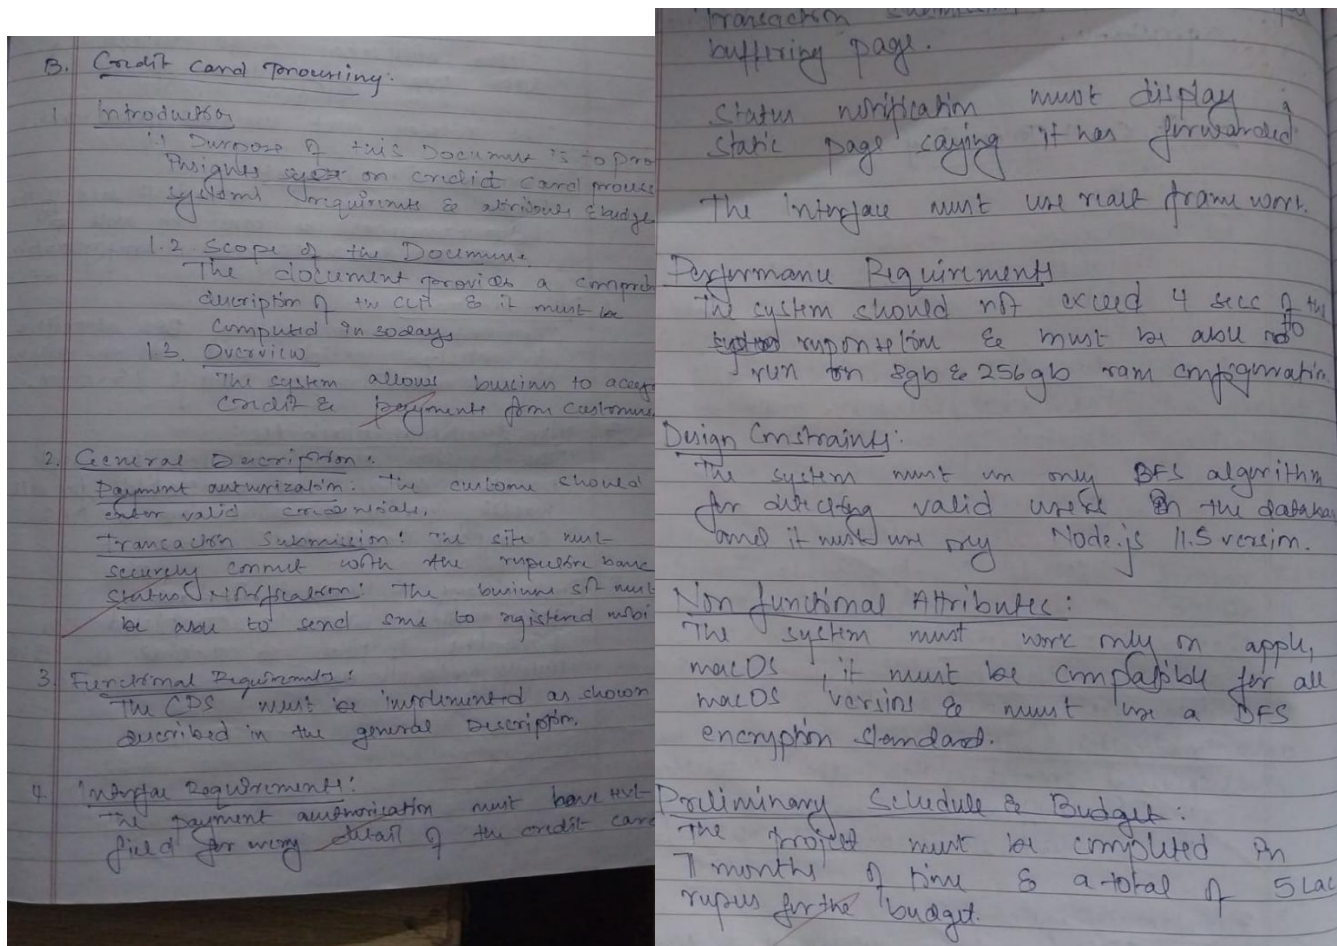 B. Credit Card Processing:
1. Introduction
1.1 Purpose of this Document is to pro
Insights on credit card process
systems requirements & attributes & budge
1.2 Scope of the Document.
The document provides a compreh
description of the & it must be
completed in 50days
1.3. Overview
The system allows business to accep
credit & payments from customers
2. General Description:
Payment authorization: The customer should
enter valid credentials.
Transaction Submission: The site must
securely connect with the respective bank
Status Notification: The business site must
be able to send sms to registered mobi
3. Functional Requirements:
The CDS must be implemented as shown
described in the general Description.
4. Interface Requirements:
The payment authorization must have text
field for every detail of the credit card
Transaction submission
buffering page.
Status notification must display a
static page saying it has forwarded
The interface must use react frame work.
Performance Requirements
The system should not exceed 4 secs of the
response time & must be able to
run on 8gb & 256gb ram configuration
Design Constraints:
The system must use only BFS algorithm
for detecting valid users in the databas
and it must use only Node.js 11.5 version.
Non functional Attributes:
The system must work only on apple,
macOS, it must be compatible for all
macOS versions & must use a DFS
encryption standard.
Preliminary Schedule & Budget:
The project must be completed in
7 months of time & a total of 5 Lac
rupees for the budget.